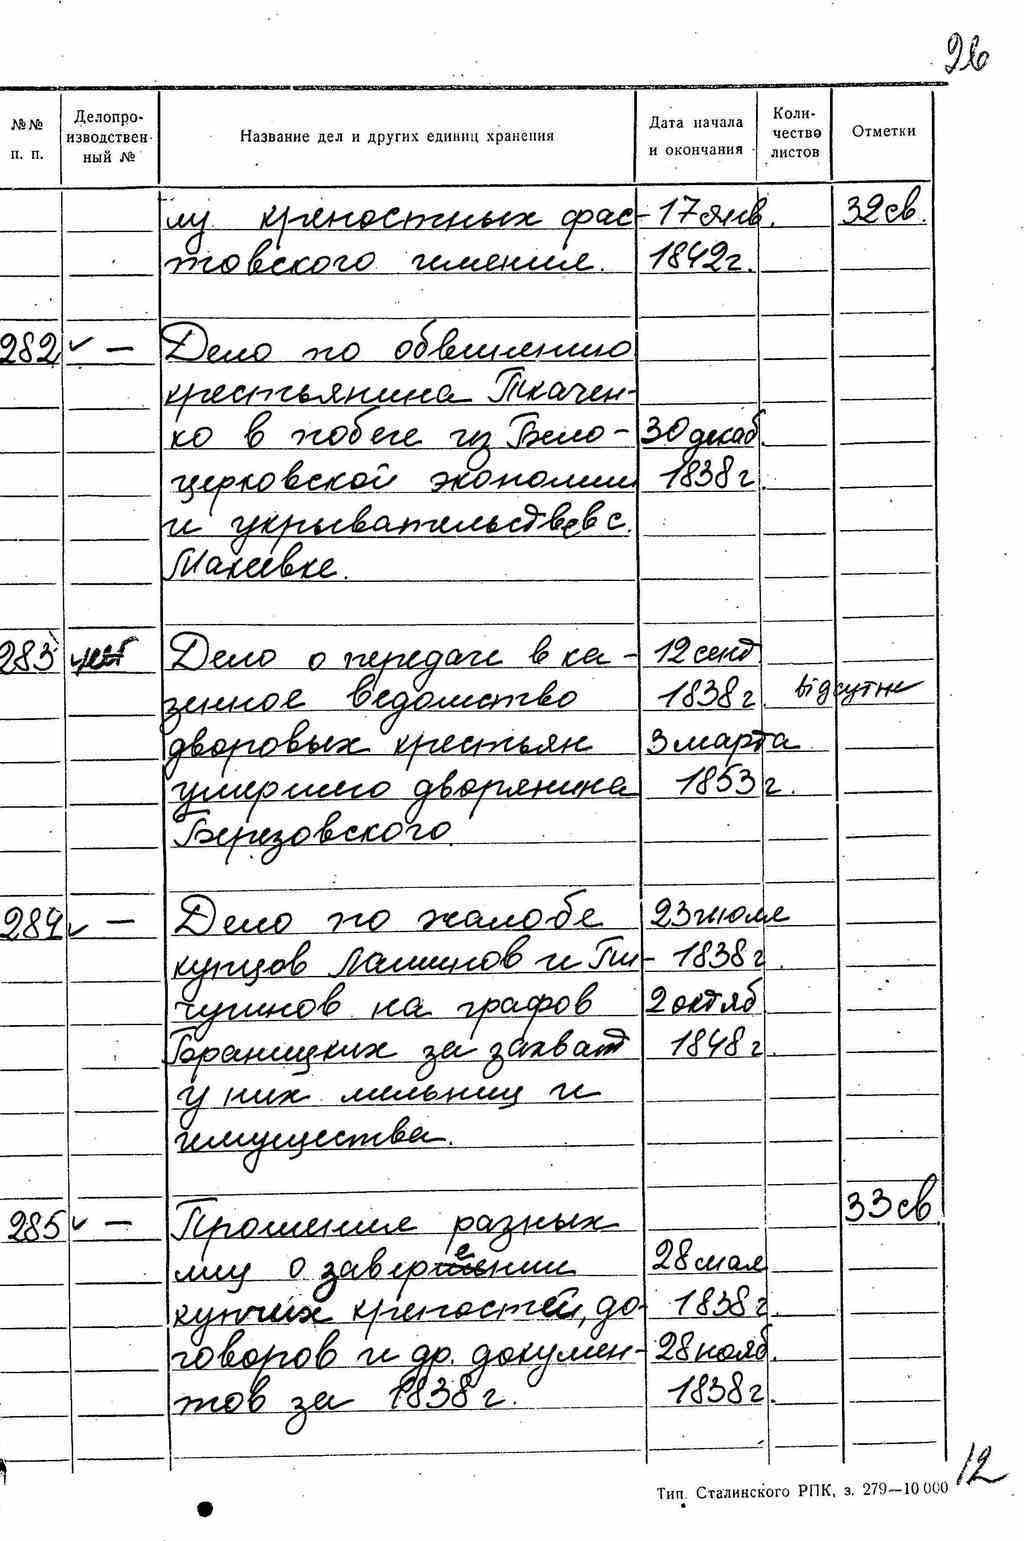 26
№№ п. п. Делопроизводственный № Название дел и других единиц хранения Дата начала и окончания Количество листов Отметки
лу крепостных фас- 17 янв. 32 св.
товского имения. 1842 г.
282 ✓ — Дело по обвинению
крестьянина Ткачен-
ко в побеге из Бело- 30 декаб.
церковской экономии 1838 г.
и укрывательстве в с.
Макеевке.
283 нет Дело о передаче в ка- 12 сент
зенное ведомство 1838 г. відсутнє
дворовых крестьян 3 марта
умершего дворянина 1853 г.
Березовского.
284 ✓ — Дело по жалобе 23 июля
купцов Лашинов и Пи- 1838 г.
чугинов на графов 2 октяб
Браницких за захват 1848 г.
у них мельниц и
имущества.
285 ✓ — Прошения разных 33 св
лиц о заверении 28 мая
купчих крепостей, до- 1838 г.
говоров и др. докумен- 28 нояб.
тов за 1838 г. 1838 г.
12
Тип. Сталинского РПК, з. 279—10 000